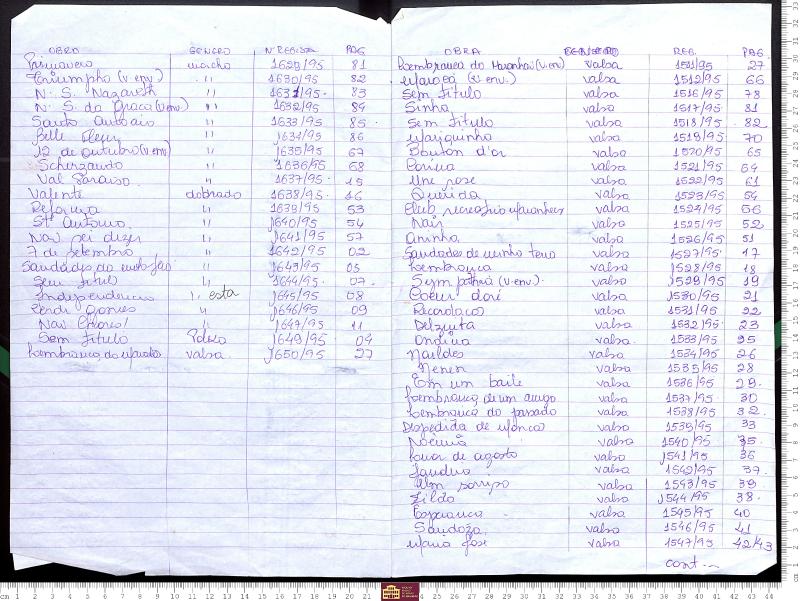 OBRA GENERO Nº REGISTRO PAG
Primavera marcha 1629/95 81
Triumpho (v env) " 1630/95 82
N. S. Nazareth " 1631/95 83
N. S. da Graça (v env) " 1632/95 84
Santo Antonio " 1633/95 85
Belle " 1634/95 86
12 de outubro (v env) " 1635/95 67
Scherzando " 1636/95 68
Val Paraiso " 1637/95 15
Valente dobrado 1638/95 16
Reforma " 1639/95 53
Stº Antonio " 1640/95 54
Nao sei dizer " 1641/95 57
7 de setembro " 1642/95 02
Saudades de " 1643/95 05
Sem titulo " 1644/95 07
Independencia " esta 1645/95 08
Gomes " 1646/95 09
Nao Chores! " 1647/95 11
Sem titulo Polka 1649/95 04
Lembrança do valsa 1650/95 27
OBRA GENERO REG. PAG.
Lembrança do Maranhão (v env) valsa 1511/95 27
(v env.) valsa 1512/95 66
Sem titulo valsa 1516/95 78
Sinha valsa 1517/95 81
Sem titulo valsa 1518/95 82
Mariquinha valsa 1519/95 70
Bouton d'or valsa 1520/95 65
Corina valsa 1521/95 64
Une rose valsa 1522/95 61
Querida valsa 1523/95 54
Club recreativo maranhense valsa 1524/95 56
Nair valsa 1525/95 52
Aninha valsa 1526/95 51
Saudades de minha terra valsa 1527/95 17
Lembrança valsa 1528/95 18
Sympathia (v env). valsa 1529/95 19
Coeur d'ore valsa 1530/95 21
valsa 1531/95 22
Delzuita valsa 1532/95 23
Ondina valsa 1533/95 25
Naildes valsa 1534/95 26
Nenen valsa 1535/95 28
Em um baile valsa 1536/95 29
Lembrança de um amigo valsa 1537/95 30
Lembrança do passado valsa 1538/95 32
Despedida de valsa 1539/95 33
Noemia valsa 1540/95 35
Luar de agosto valsa 1541/95 36
valsa 1542/95 37
Um sorriso valsa 1543/95 39
Zilda valsa 1544/95 38
Esperança valsa 1545/95 40
Saudoza valsa 1546/95 41
Maria José valsa 1547/95 42/43
cont...